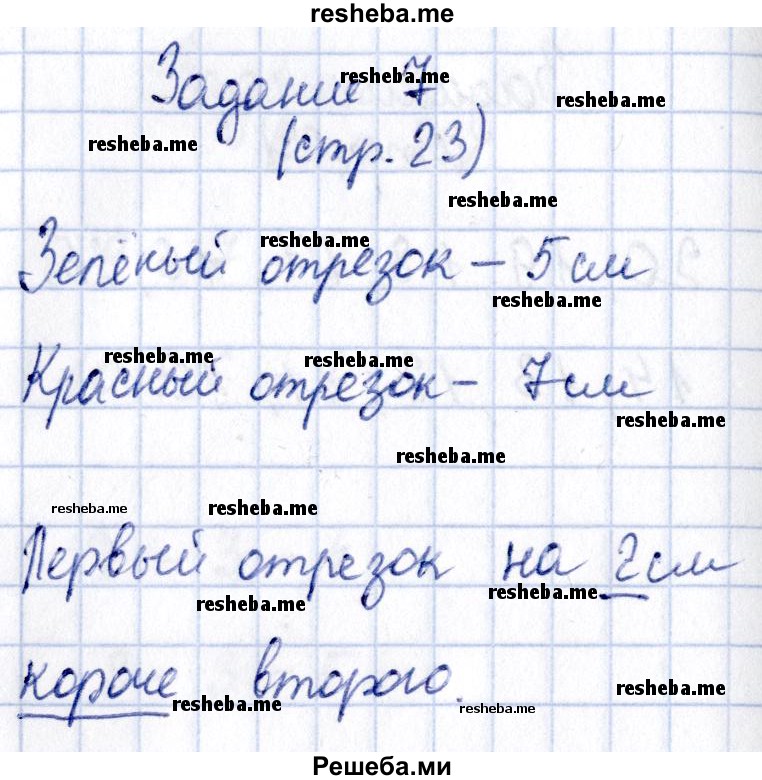 resheba.me
Задание 7
resheba.me
resheba.me
(стр. 23)
resheba.me
resheba.me
resheba.me
Зелёный отрезок – 5 см
resheba.me
resheba.me
resheba.me
Красный отрезок – 7 см
resheba.me
resheba.me
resheba.me
resheba.me
Первый отрезок на 2 см
resheba.me
resheba.me
короче второго.
resheba.me
resheba.me
resheba.me
Решеба.ми